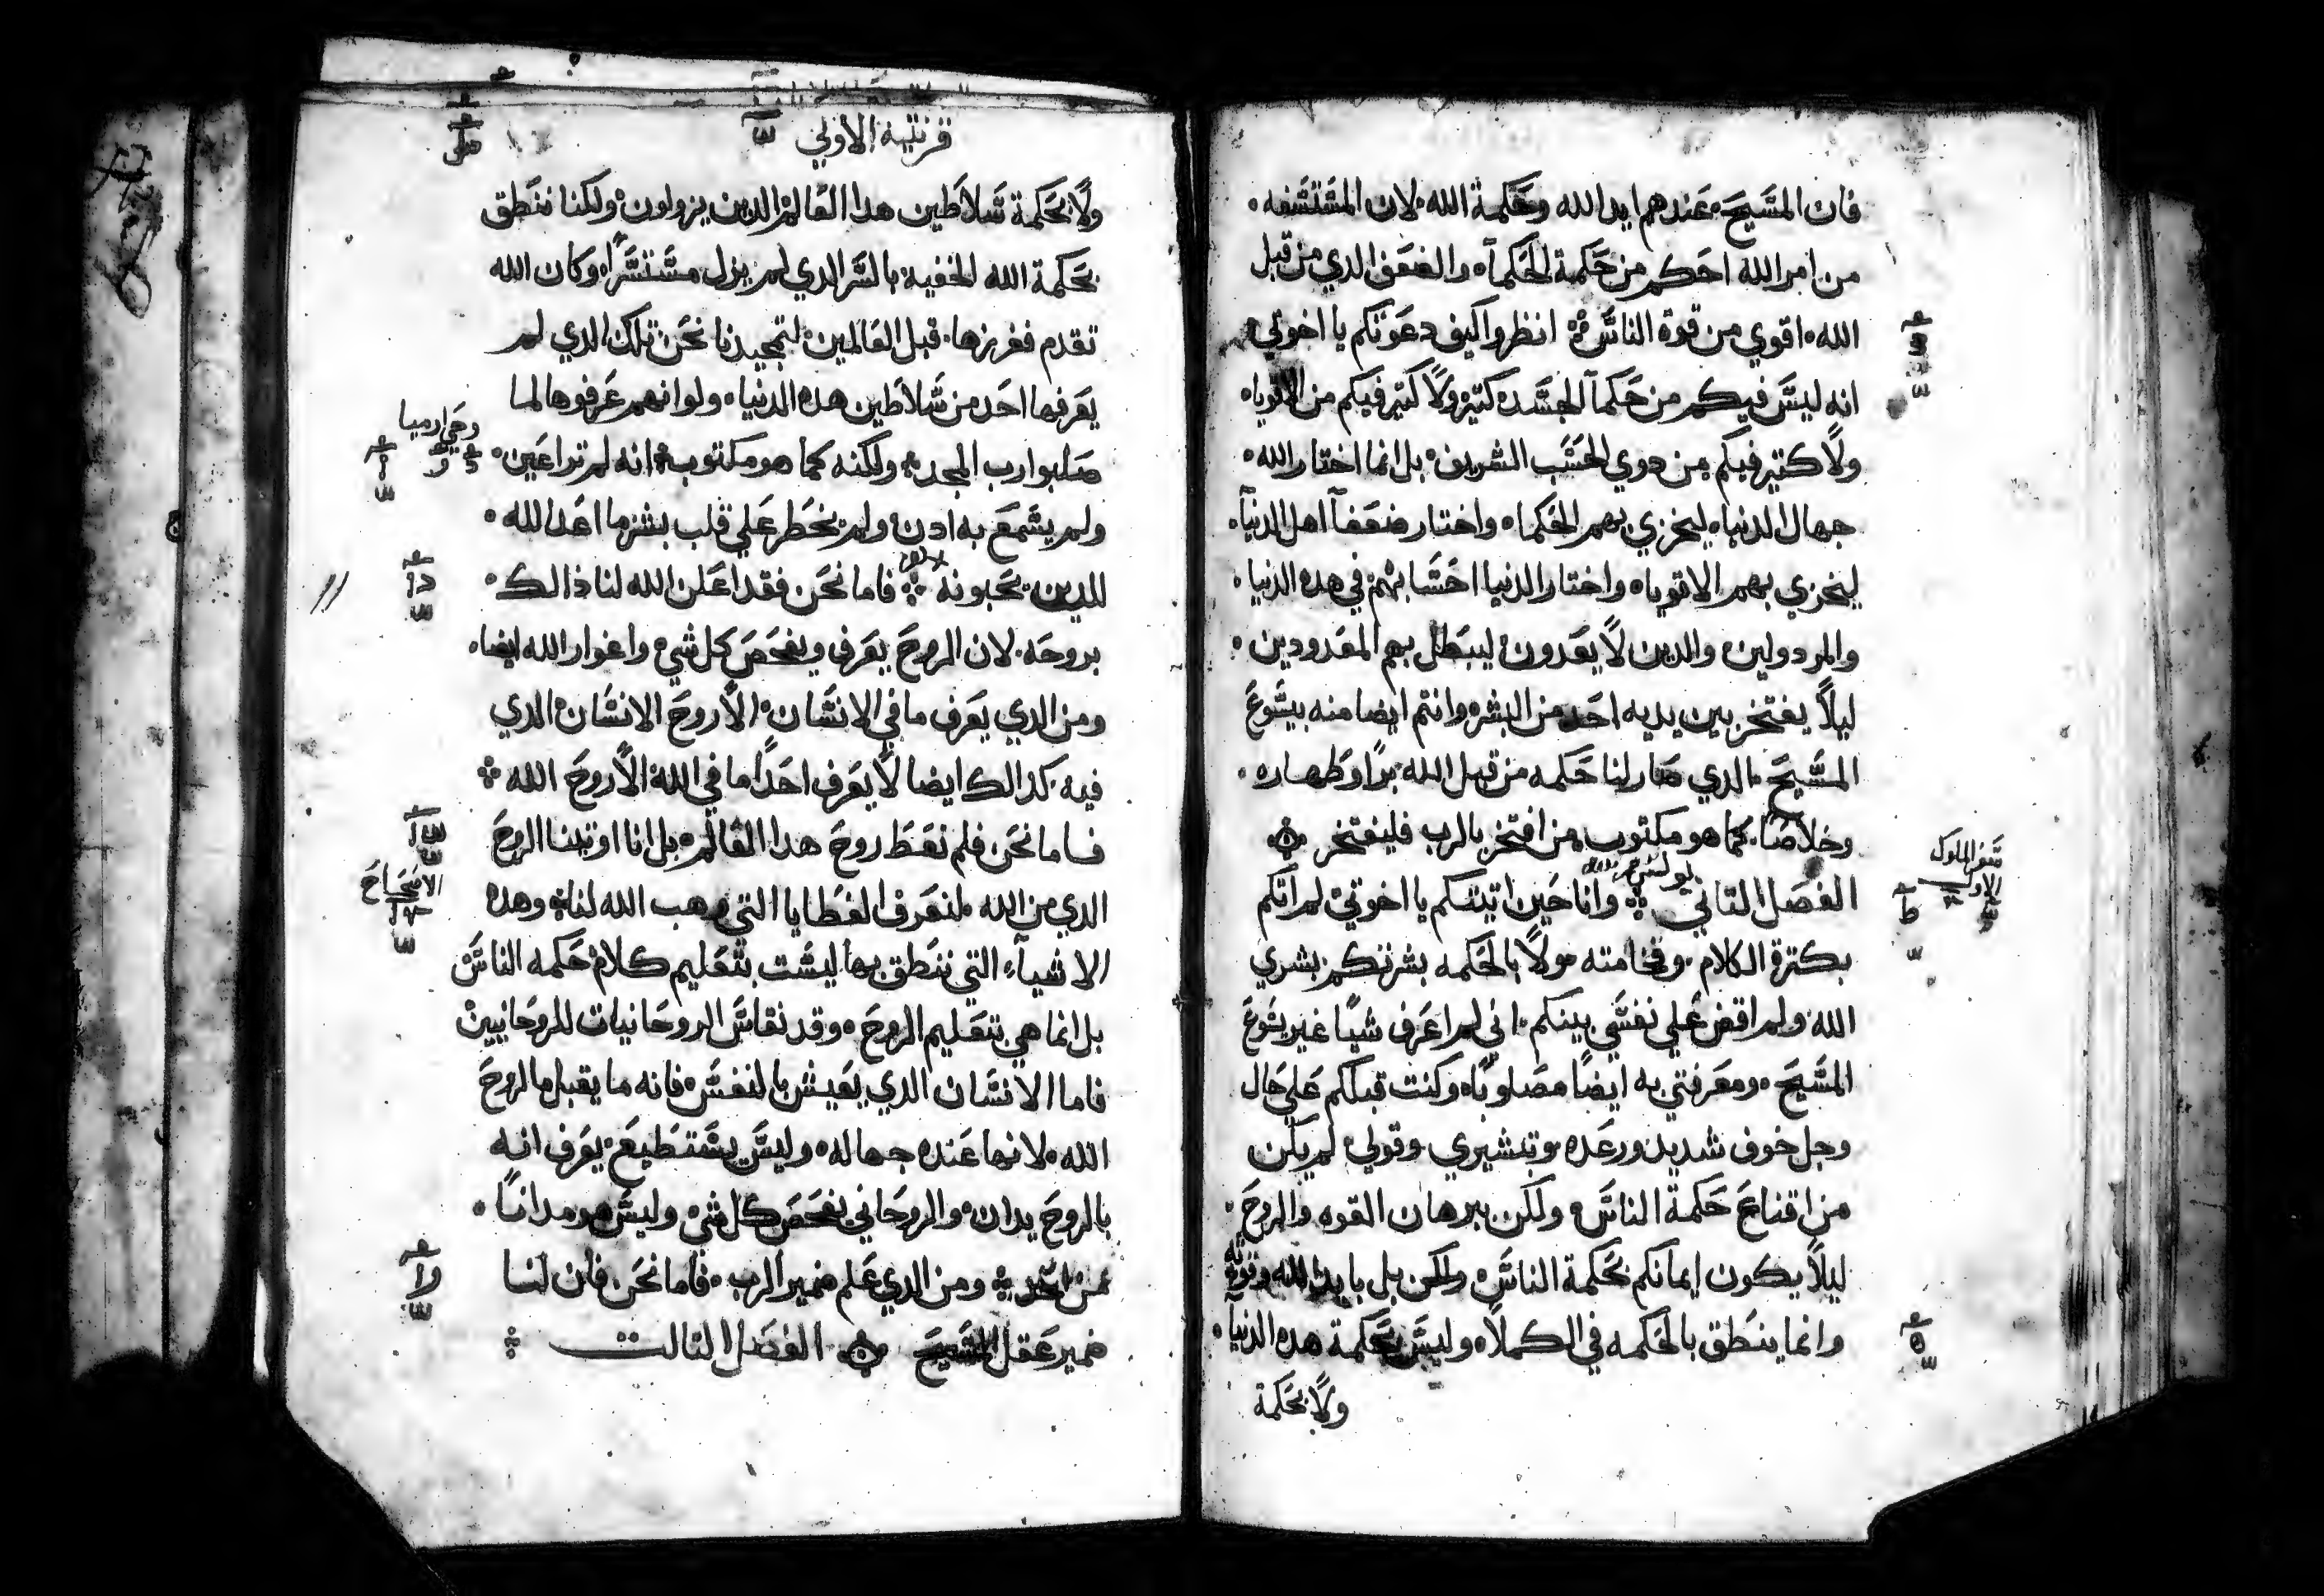 فان المسيح عندهم ايد الله وحكمة الله لان المستسفه
من امر الله احكم من حكمة الحكمآ والضعف الدي من قبل
الله اقوي من قوة الناس انظروا كيف دعوتكم يا اخوتي
انه ليس فيكم من حكمآ الجسد كتير ولا كتير فيكم من الاقويا
ولا كتير فيكم من دوي الحسب الشريف بل انما اختار الله
جهال الدنيا ليخزي بهم الحكما واختار ضعفآ اهل الدنيآ
ليخزي بهم الاقويا واختار الدنيا اخسابهم في هده الدنيا
والمردولين والدين لا يعدون ليبطل بهم المعدودين
ليلا يفتخر بين يديه احد من البشر وانتم ايضا منه بيسوع
المسيح الدي صار لنا حكمه من قبل الله برا وطهاره
وخلاصا كما هو مكتوب من افتخر بالرب فليفتخر
سفر الملوك
الاول
الفصل التاني وانا حين اتيتكم يا اخوتي لم اتكم
بكترة الكلام وفخامته ولا بالحكمه بشرتكم بشري
الله ولم اقض علي نفسي بينكم اني لم اعرف شيا غير يسوع
المسيح ومعرفتي به ايضا مصلوبا وكنت قبلكم علي حال
وجل خوف شديد ورعده وتبشيري وقولي لم يكن
من اقناع حكمة الناس ولكن ببرهان القوه والروح
ليلا يكون ايمانكم بحكمة الناس ولكن بل بايد الله وقوته
وانما ينطق بالحكمه في الكملا وليس بحكمة هده الدنيا
ولا بحكمة
قرنتيه الاولي
ولا بحكمة سلاطين هدا العالم الدين يزولون ولكنا ننطق
بحكمة الله الخفيه بالسر الدي لم يزل مستسرا وكان الله
تقدم ففرزها قبل العالمين لتمجيدنا نحن تلك الدي لم
يعرفها احد من سلاطين هده الدنيا ولو انهم عرفوها لما
وحي ارميا
صلبوا رب المجد ولكنه كما هو مكتوب انه لم تراعين
ولم يسمع به ادن ولم يخطر علي قلب بشر ما اعد الله
للدين يحبونه فاما نحن فقد اعلن الله لنا ذالك
بروحه لان الروح يعرف ويفحص كل شي واغوار الله ايضا
ومن الدي يعرف ما في الانسان الا روح الانسان الدي
فيه كدالك ايضا لا يعرف احدا ما في الله الا روح الله
فاما نحن فلم نعط روح هدا العالم بل انا اوتينا الروح
الاصحاح
الدي من الله لنعرف العطايا التي وهب الله لنا وهده
الاشيآء التي ننطق بها ليست بتعليم كلام حكمه الناس
بل انما هي بتعليم الروح وقد نقاس الروحانيات للروحانيين
فاما الانسان الدي يعيش بالنفس فانه ما يقبل ما لروح
الله لانها عنده جهاله وليس يستطيع يعرف انه
بالروح يدان والروحاني يفحص كل شي وليس هو مدانا
من احد ومن الدي علم ضمير الرب فاما نحن فان لنا
ضمير عقل المسيح الفصل التالت